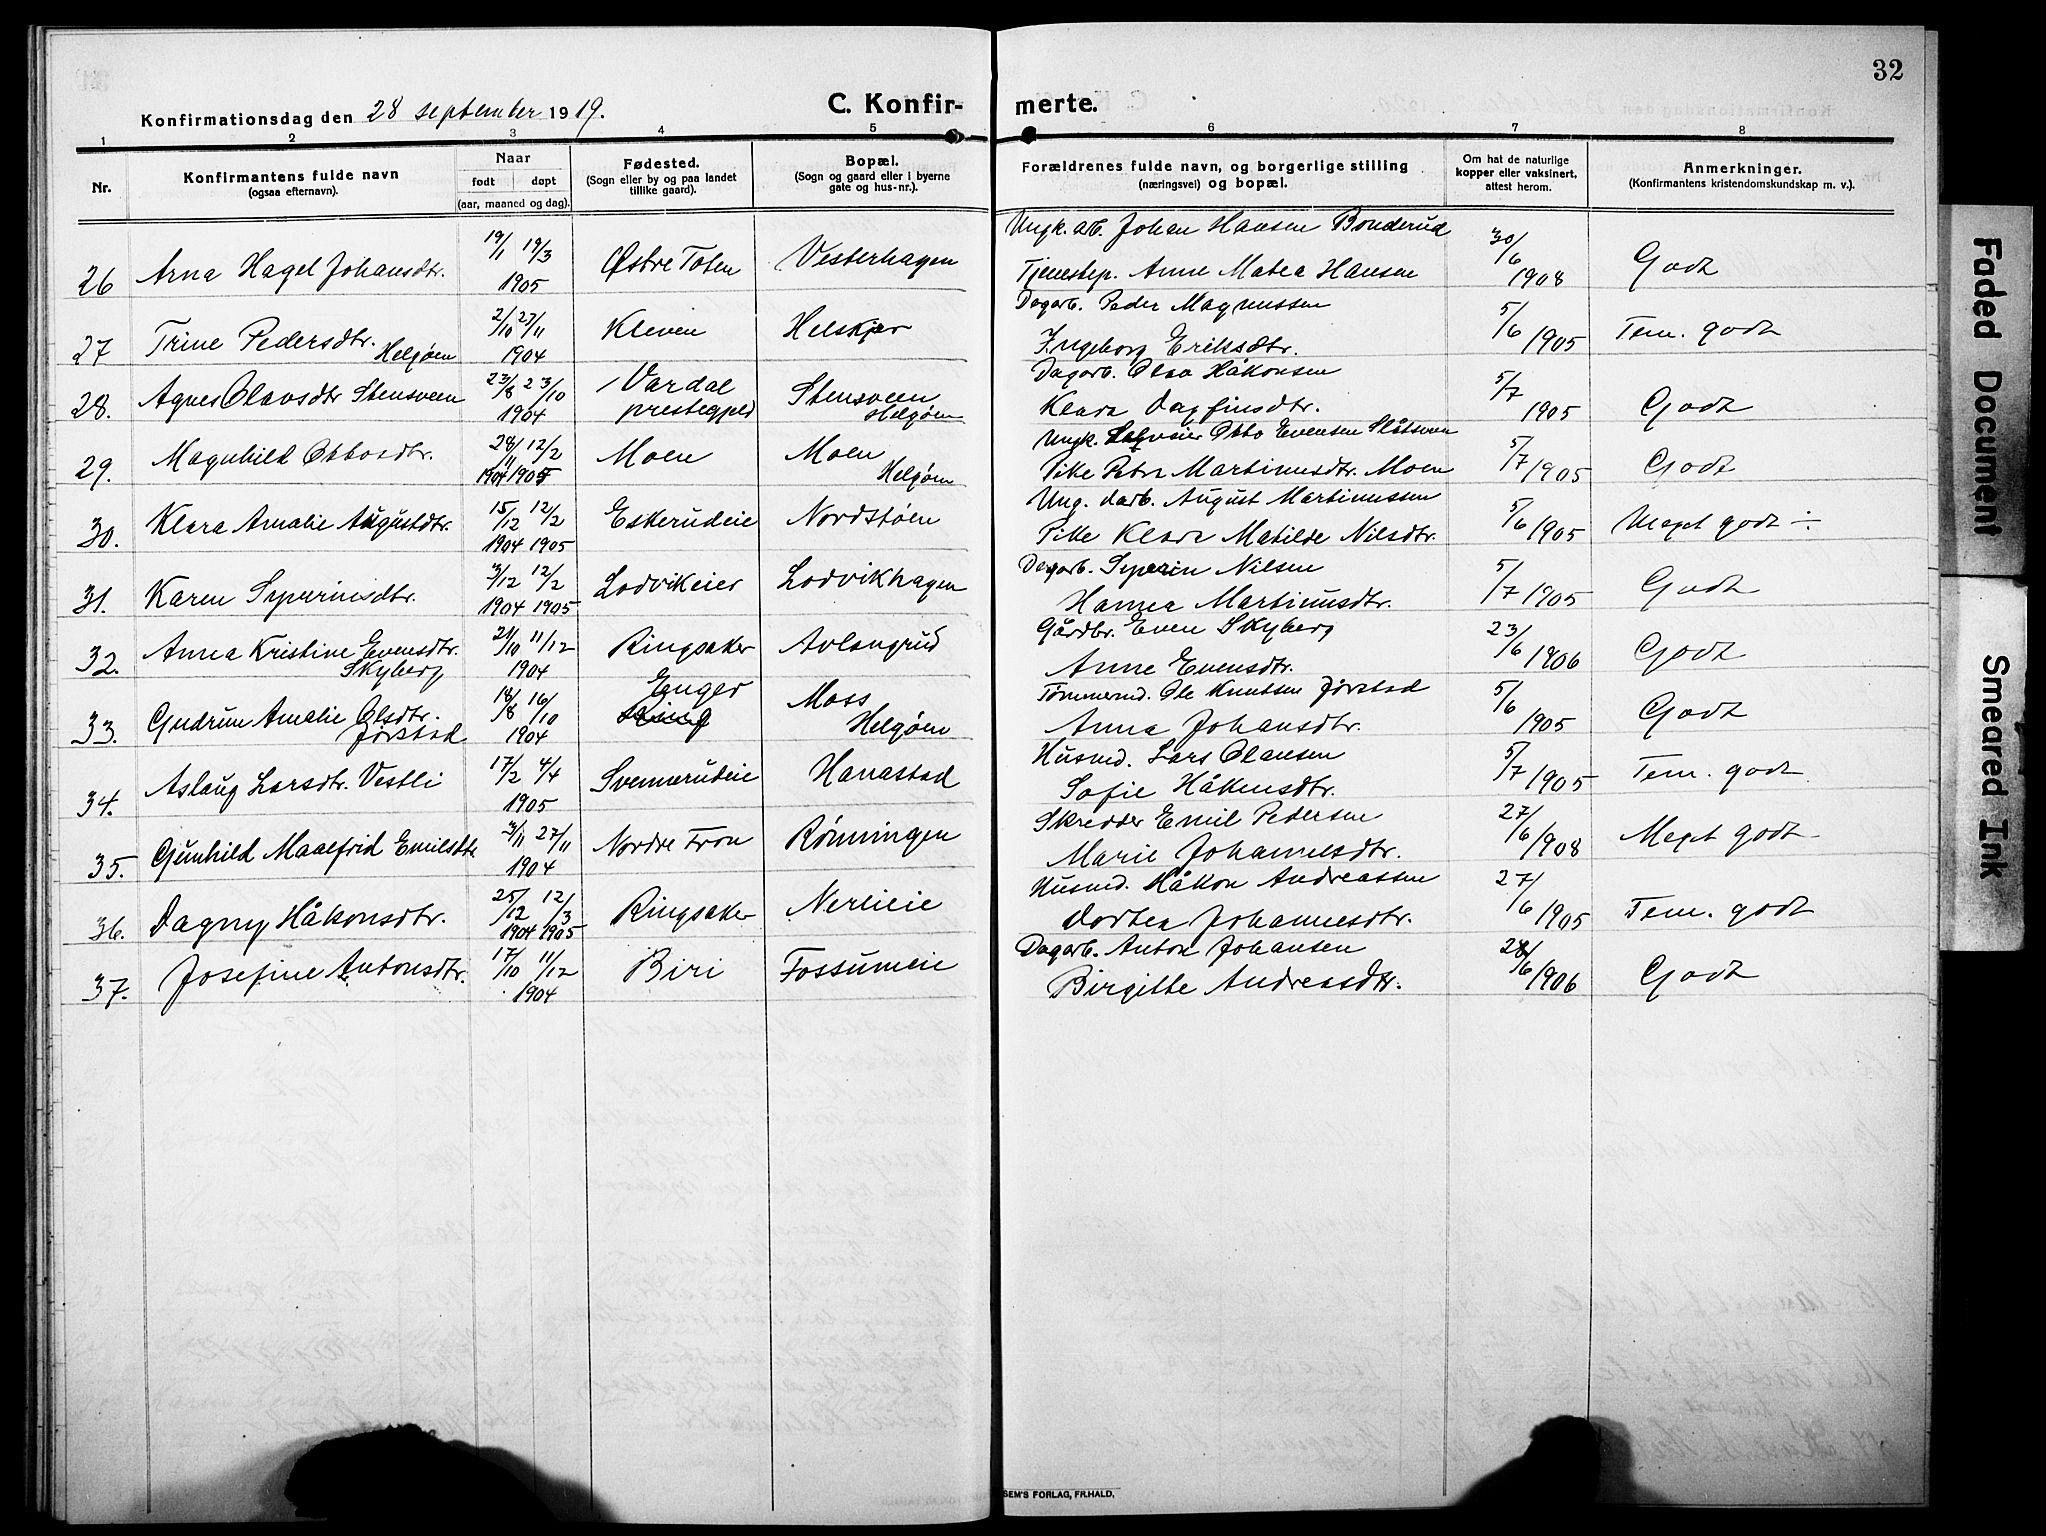 32
Konfirmationsdag den 28 september 1919.
C. Konfir- merte.
1 2 3 4 5 6 7 8
Nr.
Konfirmantens fulde navn
(ogsaa efternavn).
Naar
født døpt
(aar, maaned og dag).
Fødested.
(Sogn eller by og paa landet
tillike gaard).
Bopæl.
(Sogn og gaard eller i byerne
gate og hus-nr.).
Forældrenes fulde navn, og borgerlige stilling
(næringsvei) og bopæl.
Om hat de naturlige
kopper eller vaksinert,
attest herom.
Anmerkninger.
(Konfirmantens kristendomskundskap m. v.).
26 Arna Hagel Johansdtr. 19/1 19/3 1905 Østre Toten Vesterhagen Ungk. arb. Johan Hansen Bonderud
Tjenestep. Anne Matea Hansen 30/6 1908 Godt
27 Trine Pedersdtr. Helgøen 2/10 27/11 1904 Kleven Helskjer Dagarb. Peder Magnussen
Ingeborg Eriksdtr. 5/6 1905 Tem. godt
28. Agnes Olavsdtr Stensveen 23/8 23/10 1904 Vardal prestegjeld Stensveen Helgøen Dagarb. Olav Håkonsen
Klara Dagfinsdtr. 5/7 1905 Godt
29. Magnhild Ottosdtr. 28/11 12/2 1904 1905 Moen Moen Helgøen Ungk. Otto Evensen Slåtsveen
Pike Petra Martinusdtr. Moen 5/7 1905 Godt
30. Klara Amalie Augustdtr. 15/12 12/2 1904 1905 Eskerudeie Nordstøen Ung. darb. August Martinussen
Pike Klara Matilde Nilsdtr. 5/6 1905 Meget godt ÷
31. Karen Syverinsdtr. 3/12 12/2 1904 1905 Lodvikeier Lodvikhagen Dagarb. Syverin Nilsen
Hanna Martinusdtr. 5/7 1905 Godt
32. Anna Kristine Evensdtr. Skyberg 21/10 11/12 1904 Ringsaker Avlangrud Gårdbr. Even Skyberg
Anne Evensdtr. 23/6 1906 Godt
33. Gudrun Amalie Olsdtr. Jørstad 18/8 16/10 1904 Enger Moss Helgøen Tømmermd. Ole Knutsen Jørstad
Anna Johansdtr. 5/6 1905 Godt
34. Aslaug Larsdtr. Vestli 17/2 4/4 1905 Svennerudeie Hanastad Husmd. Lars Olansen
Sofie Håkensdtr. 5/7 1905 Tem. godt
35. Gunhild Maalfrid Emilsdtr. 3/11 27/11 1904 Nordre Fron Rønningen Skredder Emil Pedersen
Marie Johannesdtr. 27/6 1908 Meget godt
36. Dagny Håkonsdtr. 25/12 12/3 1904 1905 Ringsaker Nerlieie Husmd. Håkon Andreassen
Dortea Johannesdtr. 27/6 1905 Tem. godt
37. Josefine Antonsdtr. 17/10 11/12 1904 Biri Fossumeie Dagarb. Anton Johansen
Birgitte Andreasdtr. 28/6 1906 Godt
SEM'S FORLAG, FR.HALD.
Faded Document
Smeared Ink